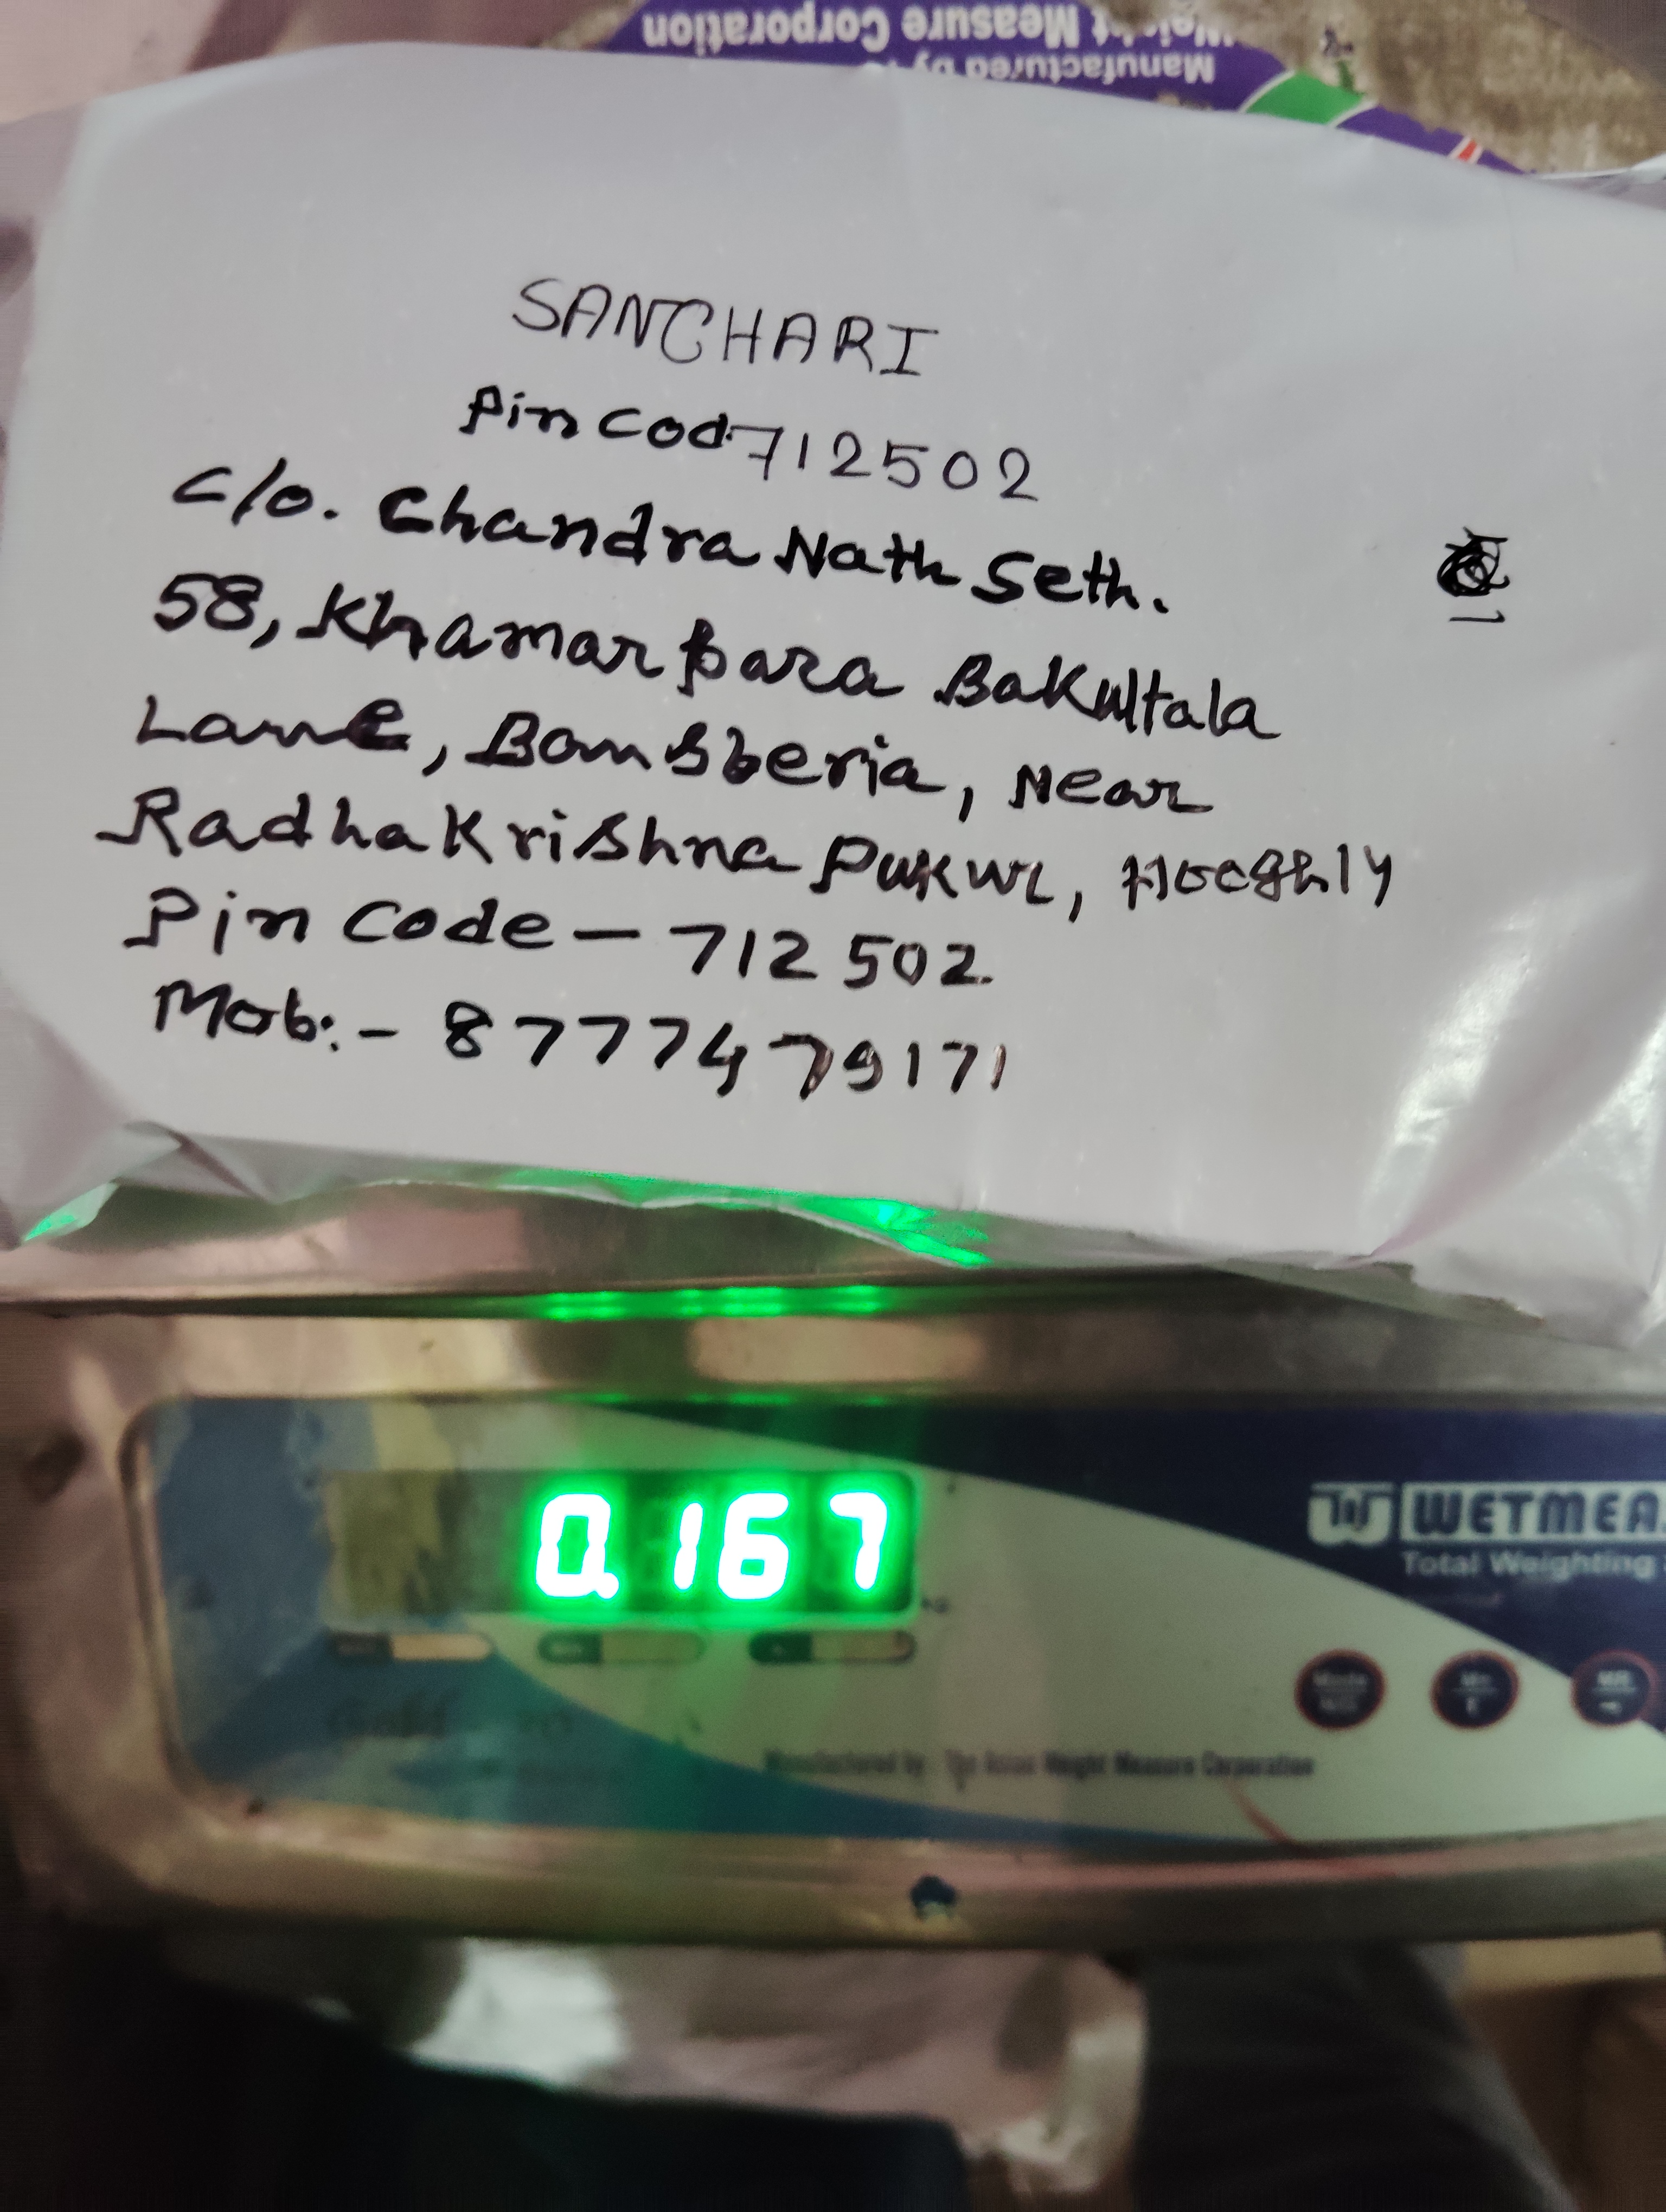 Weight Measure Corporation
Manufactured by
SANCHARI
Pin Cod 712502
c/o. Chandra Nath Seth.
58, Khamarpara Bakultala
Lane, Bansberia, Near
RadhaKrishna Pukur, Hooghly
Pin Code - 712 502
Mob:- 8777479171
0.167
WETMEA
Total Weighting
Manufactured by : The Asian Weight Measure Corporation